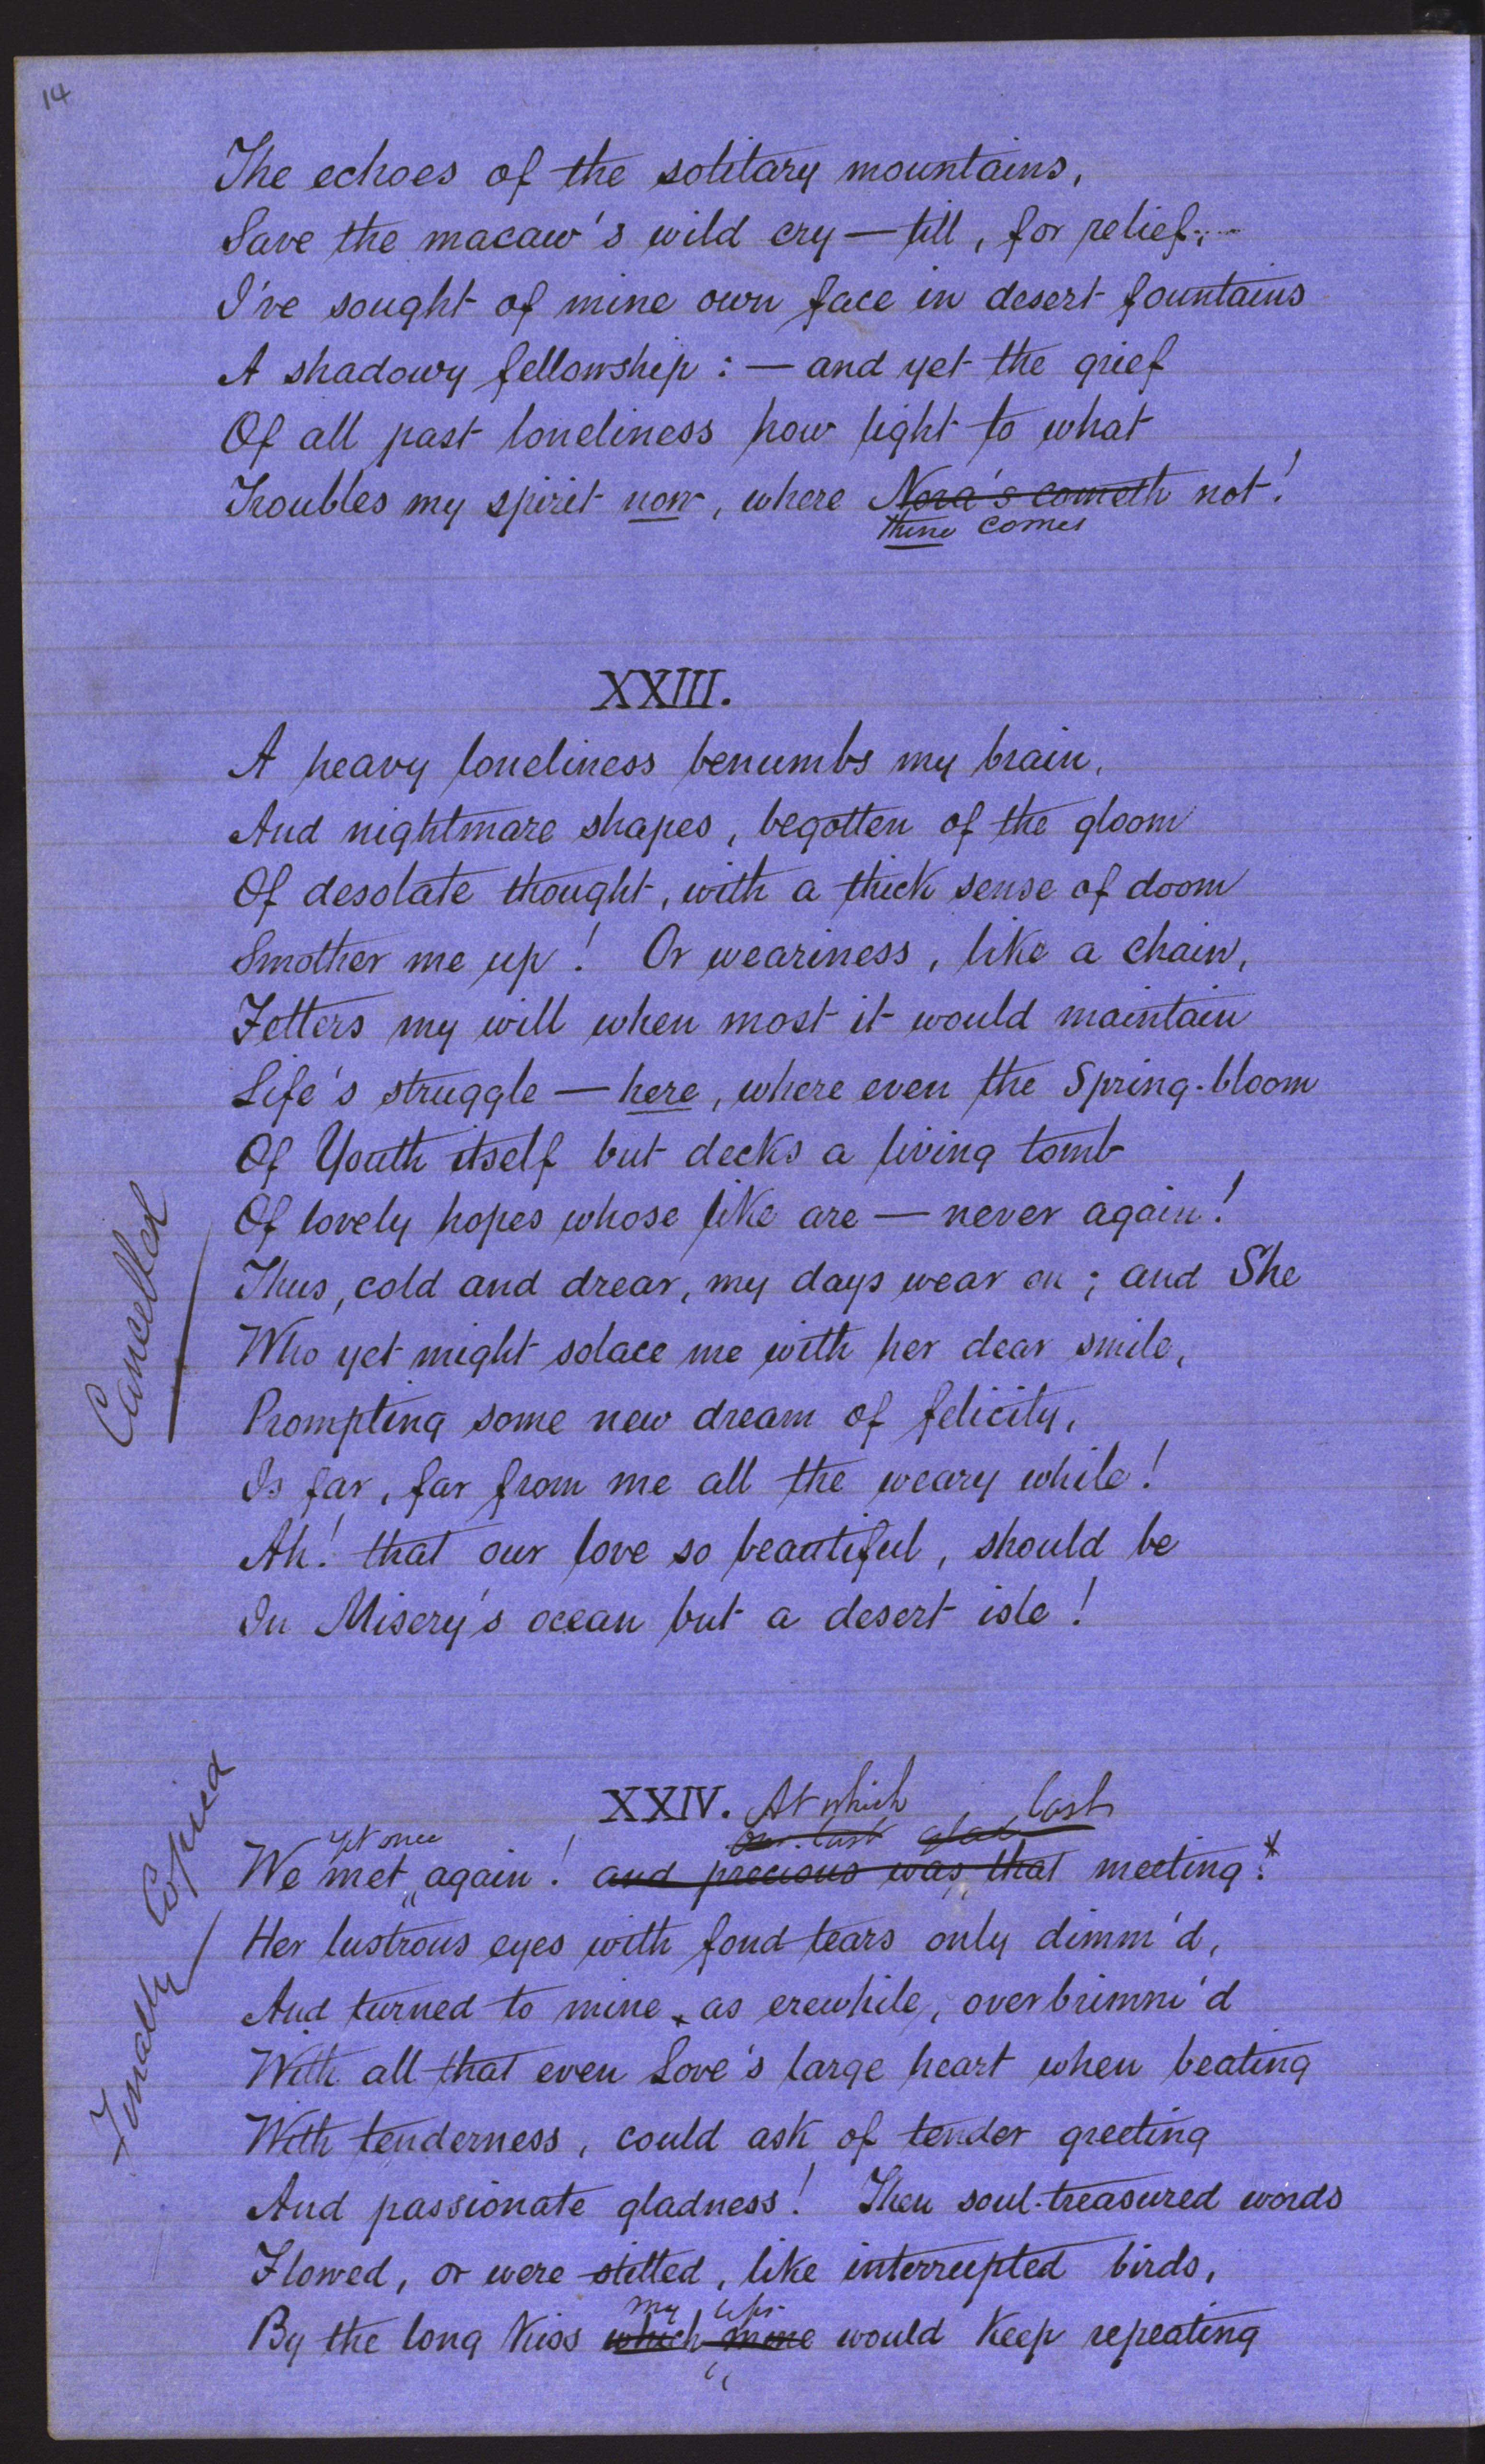 14
The echoes of the solitary mountains,
Save the macaw's wild cry — till, for relief,
I've sought of mine own face in desert fountains
A shadowy fellowship : — and yet the grief
Of all past loneliness how light to what
Troubles my spirit now, where Nora's cometh not!
thine comes
XXIII.
A heavy loneliness benumbs my brain,
And nightmare shapes, begotten of the gloom
Of desolate thought, with a thick sense of doom
Smother me up! Or weariness, like a chain,
Fetters my will when most it would maintain
Life's struggle — here, where even the Spring-bloom
Of Youth itself but decks a living tomb
Of lovely hopes whose like are — never again!
Cancelled
Thus, cold and drear, my days wear on ; and She
Who yet might solace me with her dear smile,
Prompting some new dream of felicity,
Is far, far from me all the weary while!
Ah! that our love so beautiful, should be
In Misery's ocean but a desert isle!
Finally Copied
XXIV. At which last
yet once our last
We met again! and precious was that meeting :*
Her lustrous eyes with fond tears only dimm'd,
And turned to mine, as erewhile, overbrimm'd
With all that even Love's large heart when beating
With tenderness, could ask of tender greeting
And passionate gladness! Then soul-treasured words
Flowed, or were stilled, like interrupted birds,
my lips
By the long kiss which mine would keep repeating